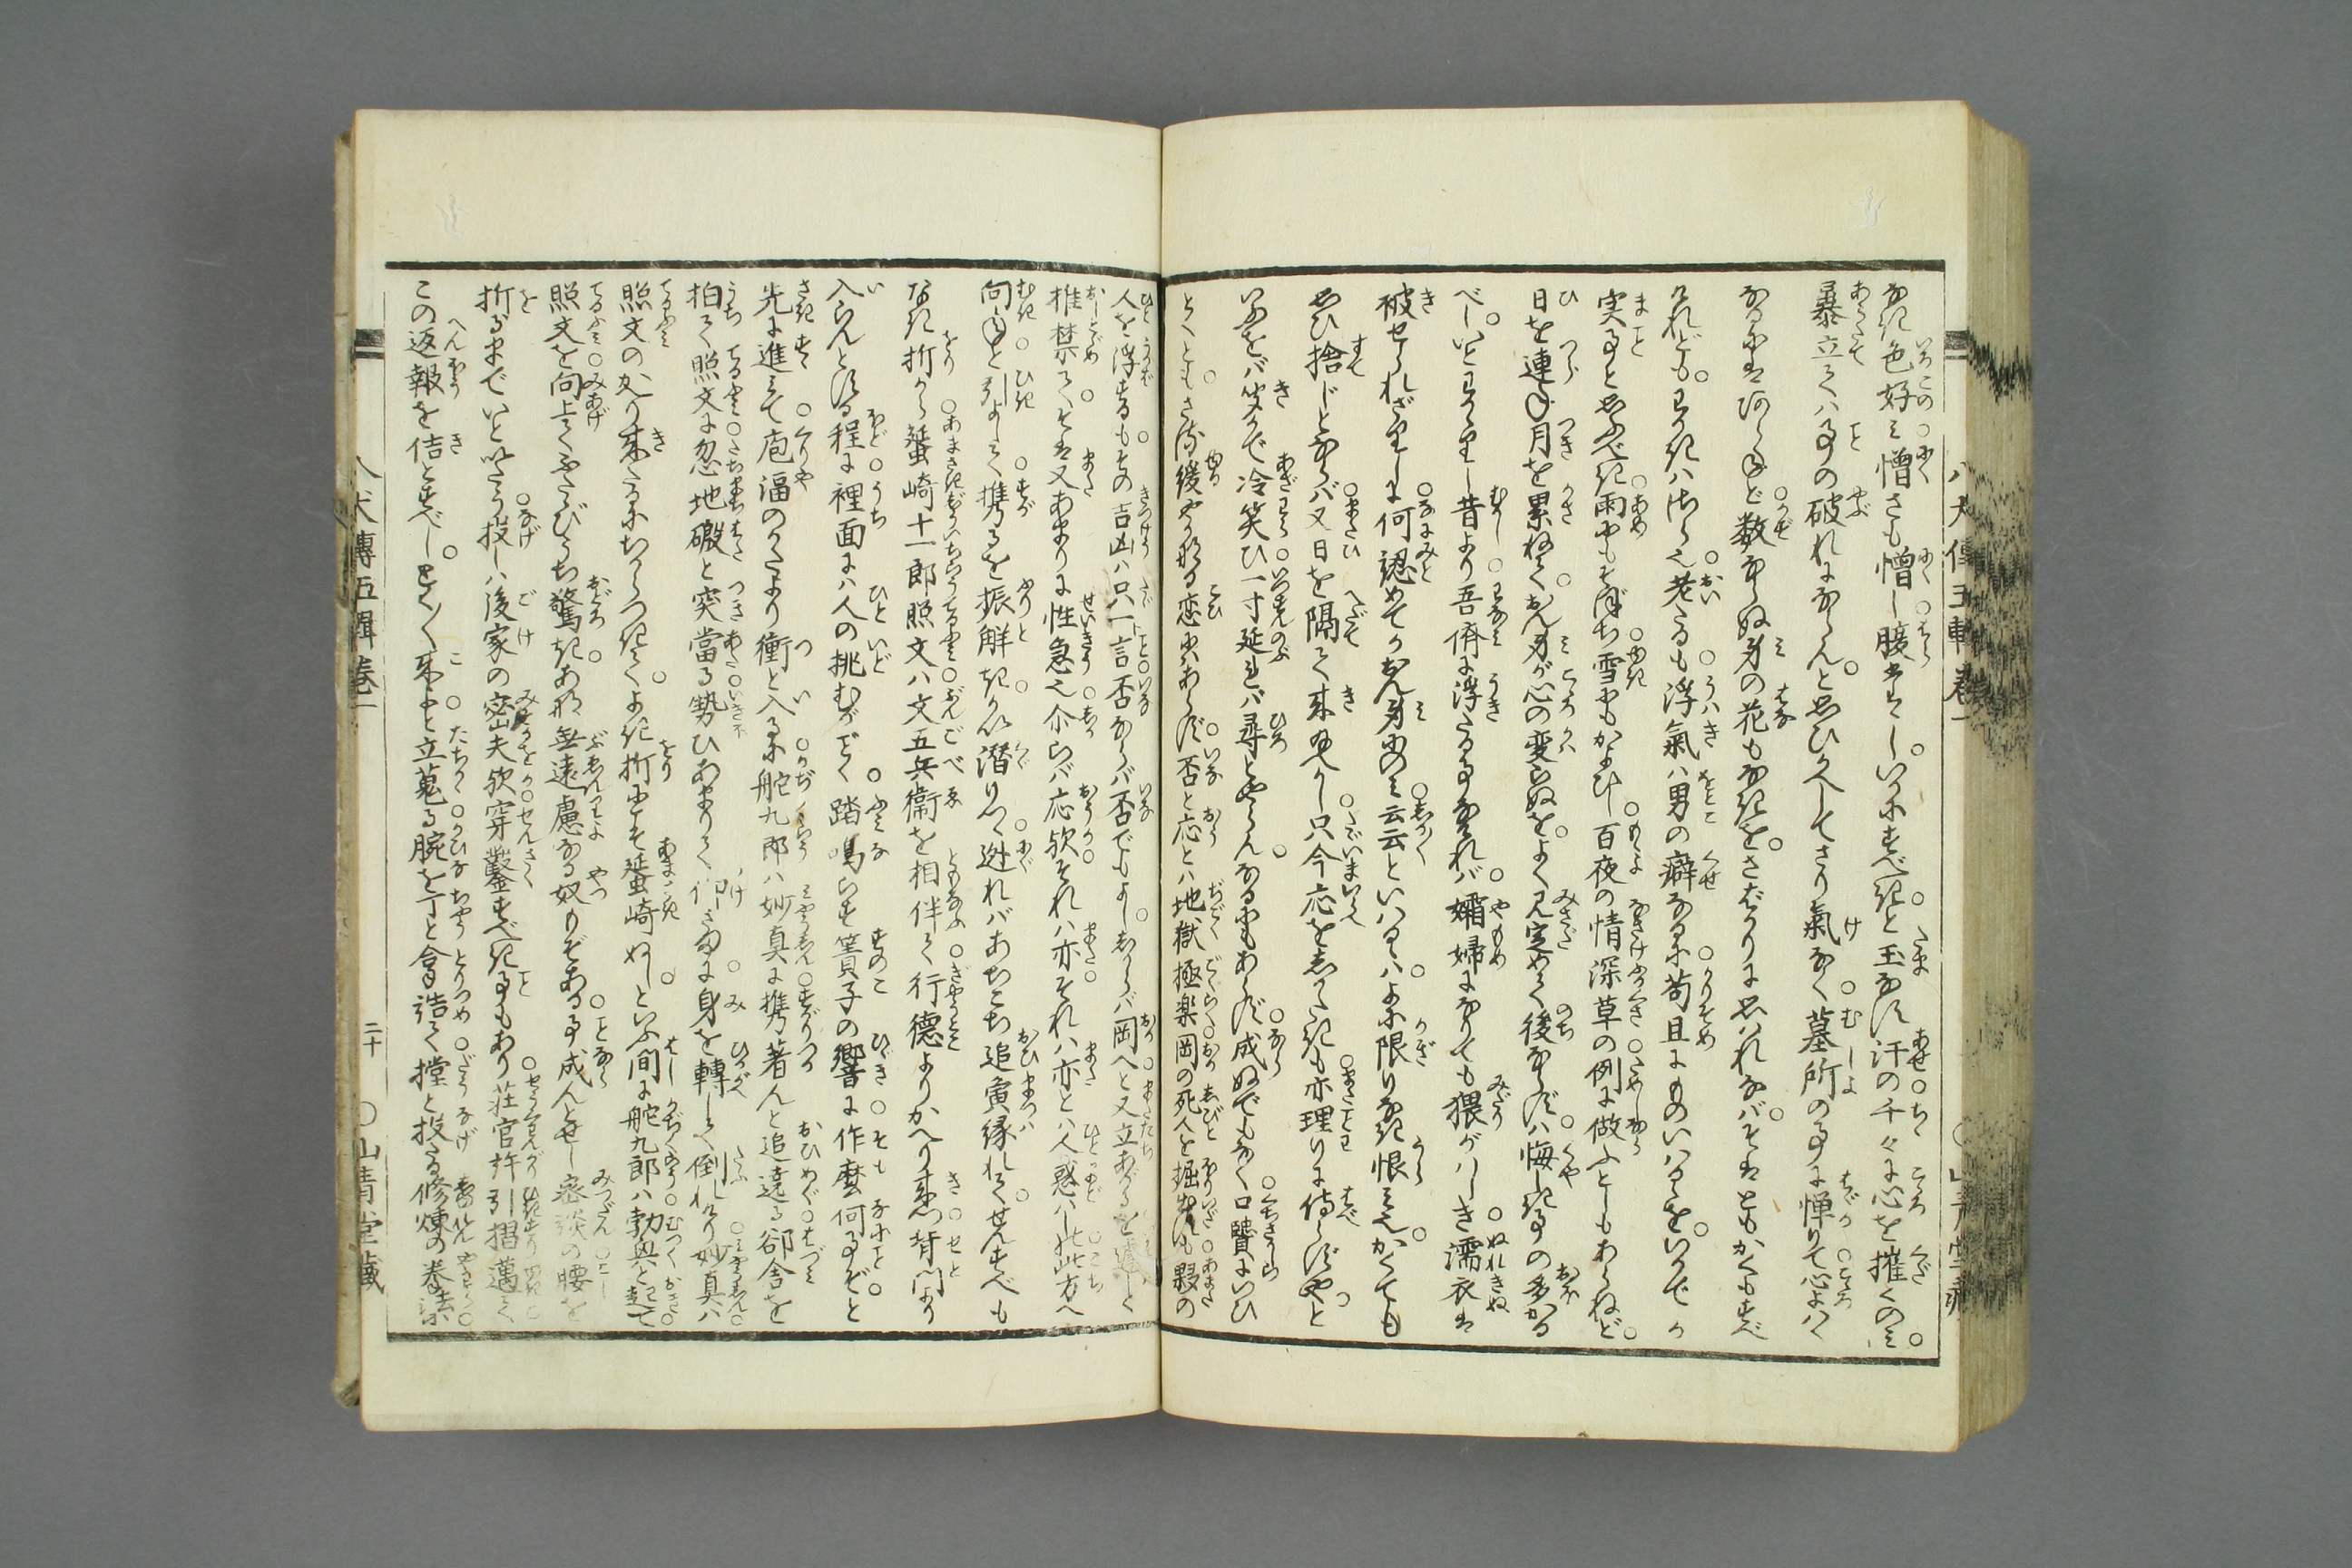 なき色好み憎さも憎し腹はたし。いかにすべきと玉なす汗の千々に心を摧くのみ。
暴立てハ事の破れにならん。と思ひかへしてさり氣なく墓所の事に憚りて心よハく
なるにはあらねど数ならぬ身の花もなきを。さばかりに思ハれなバ。そはともかくもすべ
けれども。わかきハさら也老たるも浮氣ハ男の癖なるに苟且にものいハるゝを。いかでか
実事と思ふべき雨にもそぼち雪にもかよひし百夜の情深草の例に做ふとしもあらねど。
日を連ね月を累ねて。おん身が心の変らぬを。よく見定めて後ならずハ悔しき事の多かる
べし。いとわかゝりし昔より吾儕に浮たる事なけれバ。孀婦になりても猥がハしき濡衣は
被せられざりしに何認めてかおん身のみ云云といハるゝハ。よに限りなき恨み也。かくても
思ひ捨じとならバ又日を隔て来ませかし只今応をしがたきも亦理りに侍らずやと
いふをバ笑かで冷笑ひ一寸延れバ尋とやらん。なるにもあらず成ぬでもなく口賢にいひ
とくとも。さる緩やかなる恋にハあらず。否と応とハ地獄極楽岡の死人を掘出すも夥の
人を浮するも。その吉凶ハ只一言否ならバ否でもよし。しからバ岡へと又立あがるを遽しく
推禁て。そは又あまりに性急也尓らバ応欤それハ亦。それハ亦とハ人惑ハし此方へ
向ねと引よして携るを振觧きかい潜りつゝ迯れバあちこち追夤縁れて。せんすべも
なき折から蜑崎十一郎照文ハ文五兵衞を相伴て行德よりかへり来つ背門より
入らんとする程に裡面にハ人の挑むがごとく。踏鳴らす簀子の響に作麼何事ぞと。
先に進みて庖湢のかたより衝と入る舵九郎ハ妙真に携著んと追遶る郤舎を
拍て照文に忽地礑と突當る勢ひあまりて仰さまに身を轉して倒れけり妙真ハ
照文のかへり来たるにちからつきて。よき折にこそ蜑崎ぬし。といふ間に舵九郎ハ勃與と起て
照文を向上てふたゝびうち驚き。あな無遠慮なる奴もぞある事成んとせし密談の腰を
折るまでいといたう投しハ後家の密夫欤穿鑿すべき事もあり荘官許引摺邁て
この返報を佶とすべし。とく〳〵来よと立蒐る腕を丁と拿詰て撑と投たる修煉の拳法
八犬傳五輯卷一
二十
○山青堂藏